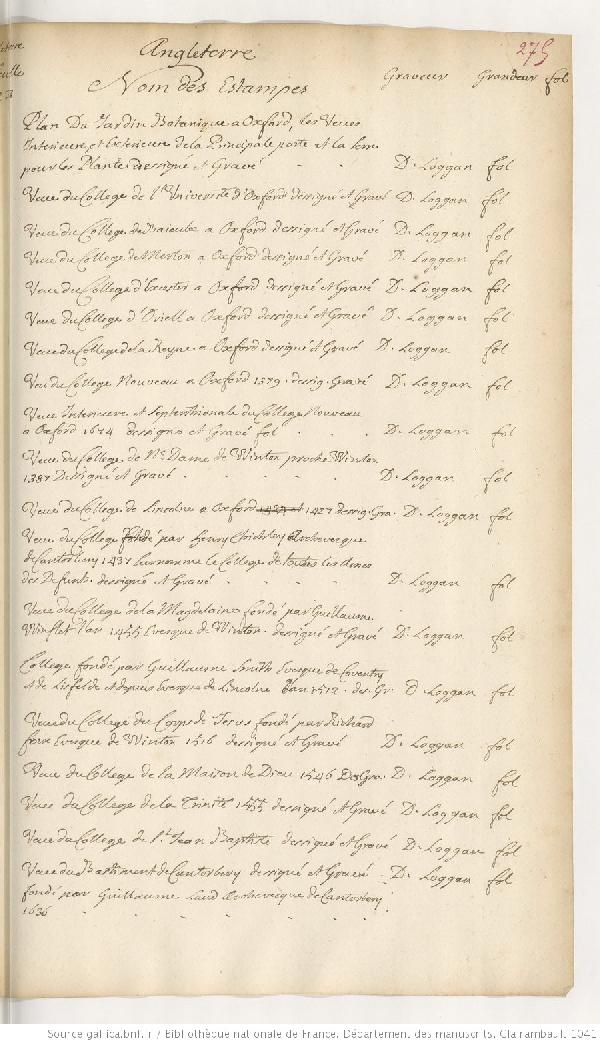 275
Angleterre
Nom des Estampes Graveur Grandeur fol
Plan Du Jardin Botanique a Oxford, les Veues
Interieure, et Exterieure de la Principale porte et la
pour les Plante dessigné et Gravé D. Loggan fol
Veue du College de l'Université d'Oxford dessigné et Gravé D. Loggan fol
Veue du College de a Oxford dessigné et Gravé D. Loggan fol
Veue du College de Merton a Oxford dessigné et Gravé D. Loggan fol
Veue du College d'Excester a Oxford dessigné et Gravé D. Loggan fol
Veue du College d'Oriell a Oxford dessigné et Gravé D. Loggan fol
Veue du College de la Reyne a Oxford dessigné et Gravé D. Loggan fol
Veu du College Nouveau a Oxford 1379. dessig. Gravé D. Loggan fol
Veue Interieure et Septentrionale du College Nouveau
a Oxford 1674 dessigné et Gravé fol D. Loggan fol
Veue du College de Ne. Dame de Winton proche Winton
1387 Dessigné et Gravé D. Loggan fol
Veue du College de Lincolne a Oxford 1427 dessig. Gra. D. Loggan fol
Veue du College fondé par Henry Chicheley Archevecque
de Cantorbery 1437 surnomme le College de toutes les Ames
des Defunts. dessigné et Gravé D. Loggan fol
Veue du College de la Magdelaine fondé par Guillaume
Winflet 1455 Evesque de Winton. dessigné et Gravé D. Loggan fol
College fondé par Guillaume Smith Evesque de Coventry
et de Lisfelde et depuis Evesque de Lincolne l'an 1512. des. Gr. D. Loggan fol
Veue du College du Corps de Jesus fondé par Richard
foxe Evesque de Winton 1516 dessigné et Gravé D. Loggan fol
Veue du College de la Maison de Dieu 1546 Des Gra. D. Loggan fol
Veue du College de la Trinité 1455 dessigné et Gravé D. Loggan fol
Veue du College de St. Jean Baptiste dessigné et Gravé D. Loggan fol
Veue du Bastiment de Cantorbery dessigné et Gravé D. Loggan fol
fondé par Guillaume Laud Archevecque de Cantorbery
1636
Source gallica.bnf.fr / Bibliothèque nationale de France. Département des manuscrits. Clairambault 1041